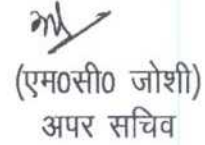 (एम0सी0 जोशी)
अपर सचिव